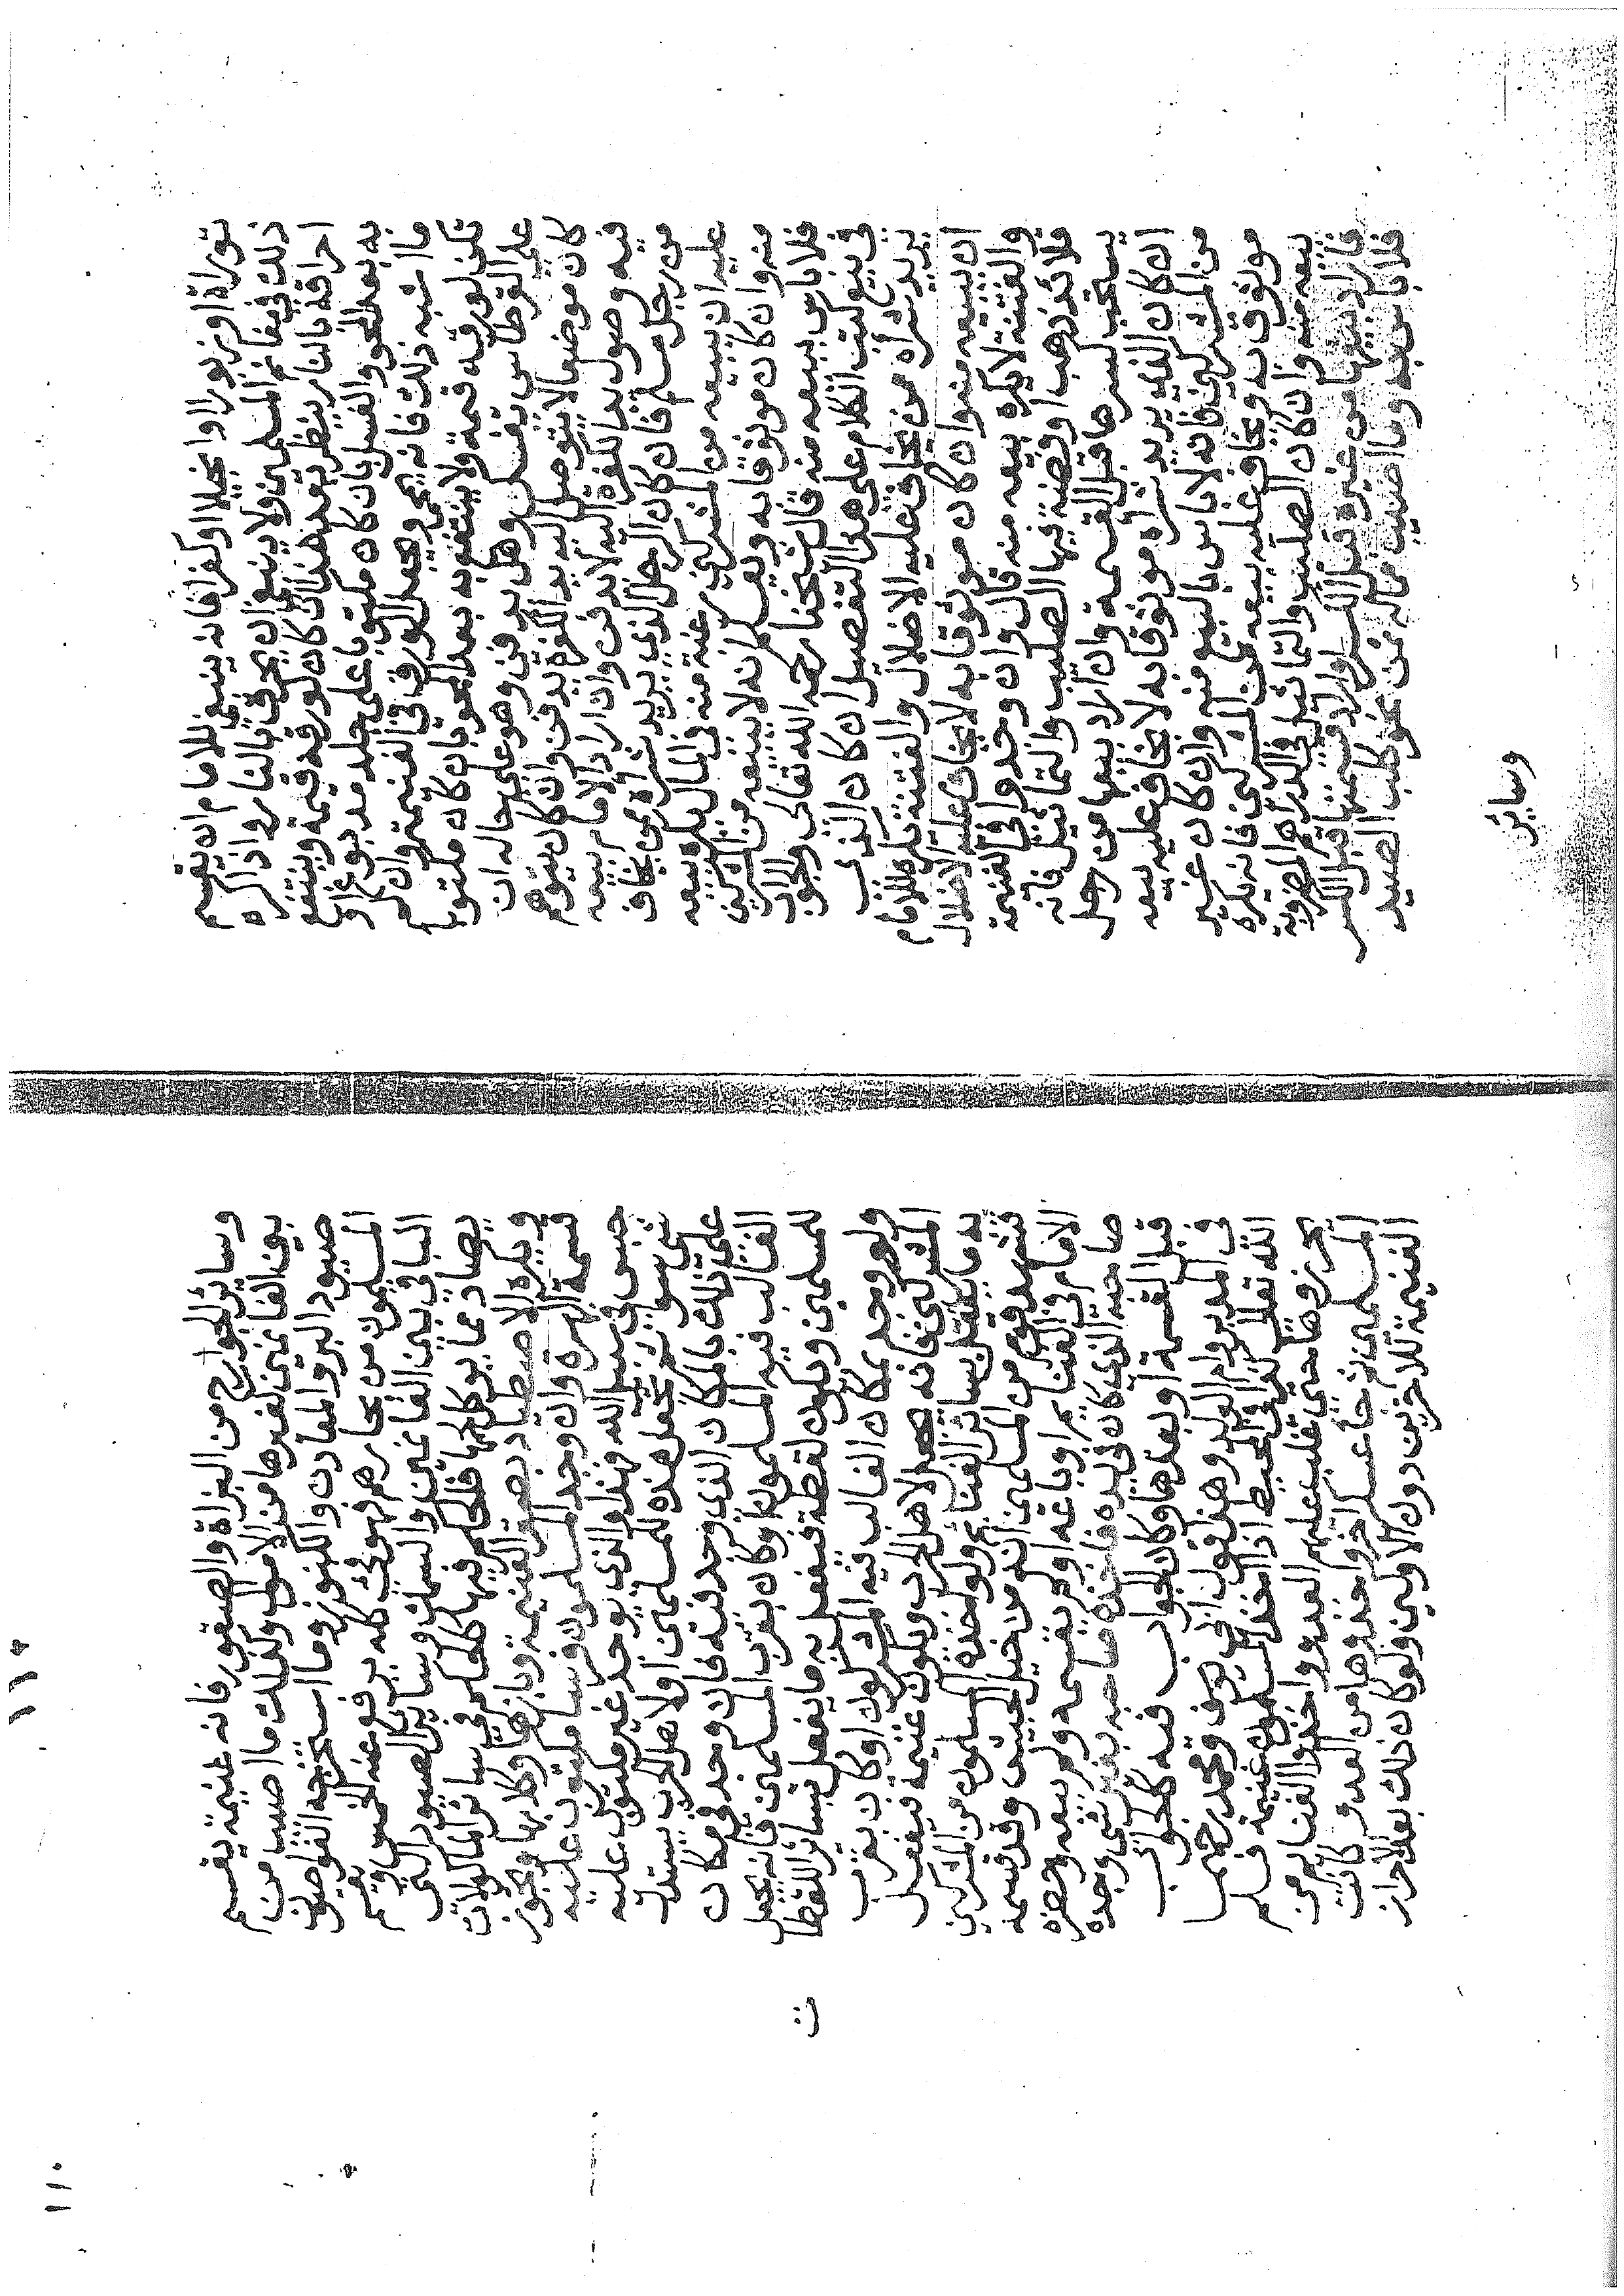 توراة او زبورا او انجيلا او كفرا فانه ينبغي للامام ان يقسم
ذلك في مغانم المسلمين ولا ينبغي ان يحرق بالنار واذا كره
احراقه بالنار ينظر بعد هذا ان كان لورقه قيمة وينتفع
به بعد المحو والغسل بان كان مكتوبا على جلد مدبوغ او
ما اشبه ذلك فانه يمحي ويجعل الورق في الغنيمة وان لم
تكن لورقه قيمة ولا ينتفع به بعد المحو بان كان مكتوبا
على القرطاس يغسل وهل يدفن وهو على حاله ان
كان موضعا لا يتوصل اليه يد الكفرة يدفن وان كان يتوهم
فيه وصول يد الكفرة اليه لا يدفن وان اراد الامام بيعه
من رجل مسلم فان كان الرجل الذي يريد شراه ممن يخاف
عليه ان يبيعه من المشركين رغبة منه في المال يكره بيعه
منه وان كان موثوقا به ويعلم انه لا يبيعه من المشركين
فلا باس ببيعه منه قال شيخنا رحمه الله تعالى والجواب
في بيع كتب الكلام على هذا التفصيل ان كان الذي
يريد شراه ممن يخاف عليه الاضلال والفتنة يكره للامام
ان يبيعه منه وان كان موثوقا به لا يخاف عليه الاضلال
والفتنة لا يكره بيعه منه قال وان وجدوا في الغنيمة
قلائد ذهب او فضة فيها الصليب والتماثيل فانه
يستحب كسرها قبل القسمة وان اراد بيعها من رجل
ان كان الذي يريد شراه موثوقا به لا يخاف عليه بيعه
من المشركين فانه لا باس بالبيع منه وان كان غير
موثوق به ويخاف عليه بيعه من المشركين فانه يكره
بيعه منه وان كان الصليب والتماثيل في الدراهم المضروبة
فاراد بيعها من غيره قبل الكسر او اراد قسمتها قبل الكسر
فلا باس به وما اصيب مما له ثمن نحو كلب الصيد
وسائر
وسائر الجوارح من البزاة والصقور فانه غنيمة يقسم
بين الغانمين لغيرها من الاموال وكذلك ما اصيب من
صيود البر والمعادن والكنوز وما استخرجه الغواصون
المسلمون من بحارهم فهو فيء كله يرفع عنه الخمس ويقسم
الباقي بين الغانمين والسمك وسائر الصيود التي
يصاد مما يوكل لحمها فالحكم فيها كالحكم في سائر الماكولات
ويكره الاصطياد بصقور الغنيمة وبازها وكلابها ويجوز
قسمة الهرة وان وجد المسلمون فرسا مكتوب عليه
حبس في سبيل الله فهذا والذي يوجد غير مكتوب عليه
شي سواء ثم تجعل هذه للمسلمين او لاهل الحرب يستدل
على ذلك بالمكان الذي وجد فيه فان وجد في مكان
الغالب فيه المسلمون او كان بقرب المسلمين فانه يجعل
للمسلمين ويكون لقطة فيفعل به ما يفعل بسائر اللقط
ولو وجد بمكان الغالب فيه المشركون او كان بقرب
المشركين فانه يجعل لاهل الحرب ويكون غنيمة فيفعل
به ما يفعل بسائر الغنائم ولو اخذه المسلمون من المشركين
فشهد قوم من المسلمين انه من خيل الحبس وقد قسمه
الامام في الغنائم او باعه او لم يقسمه ولم يبعه وحضره
صاحبه الذي كان في يده فاخذه صاحبه بغير شي وجده
قبل القسمة او بعدها وكان الجواب فيه كالجواب
في المدبر وام الولد وهذا قول ابي يوسف ومحمد رحمهما
الله تعالى كذا في المحيط اذا اخذ المسلمون غنيمة فلم
يحرزوها حتى غلب عليهم العدو واخذوا الغنايم من
المسلمين ثم جاء عسكر اخر واخذوها من العدو كانت
الغنيمة للاخرين دون الاولين ولو كان ذلك بعد الاحراز
١١٠
١١٠